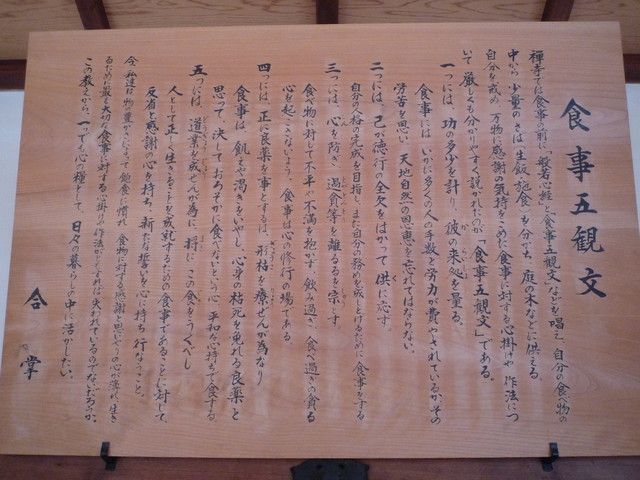 食事五観文
禅寺では食事の前に「般若心経」「食事五観文」などを唱え、自分の食べ物の
中から少量のさば(生飯・施食)を分かち、庭の木などに供える
自分を戒め 万物に感謝の気持をこめた食事に対する心掛けや作法につ
いて厳しくも分かりやすく説かれたのが「食事五観文」である。
一つには、功の多少を計り、彼の来処を量る。
食事には いかに多くの人の手数と労力が費やされているか その
労苦を思い 天地自然の恩恵を忘れてはならない。
二つには、己が徳行の全欠をはかって 供に応ず。
自分の人格の完成を目指し、また自分の務めを成しとげるために食事をする
三つには、心を防ぎ、過貪等を離るるを宗とす。
食べ物に対して不平や不満を抱かず、飲み過ぎ・食べ過ぎの貪る
心を起こさないよう、食事は心の修行の場である
四つには、正に良薬を事とするは、形枯を療ぜんが為なり
食事は、飢えや渇きをいやし、心身の枯死を免れる良薬と
思って、決しておろそかに食べないという心 平和な心持ちで食する。
五つには、道業を成ぜんが為に、将に この食をうくべし
人として正しく生きることを成就するための食事であることに対して、
反省と感謝の心を持ち、新たな誓を心に持ち行なうこと。
今、私達は物豊かさによって飽食に慣れ 食物に対する感謝と思いやりの心が薄れ、生き
るために最も大切な食事に対する心構えや作法がともすれば失われているのでないだろうか。
この教えから、一つでも心の糧として、日々の暮らしの中に活かしたい。
合掌